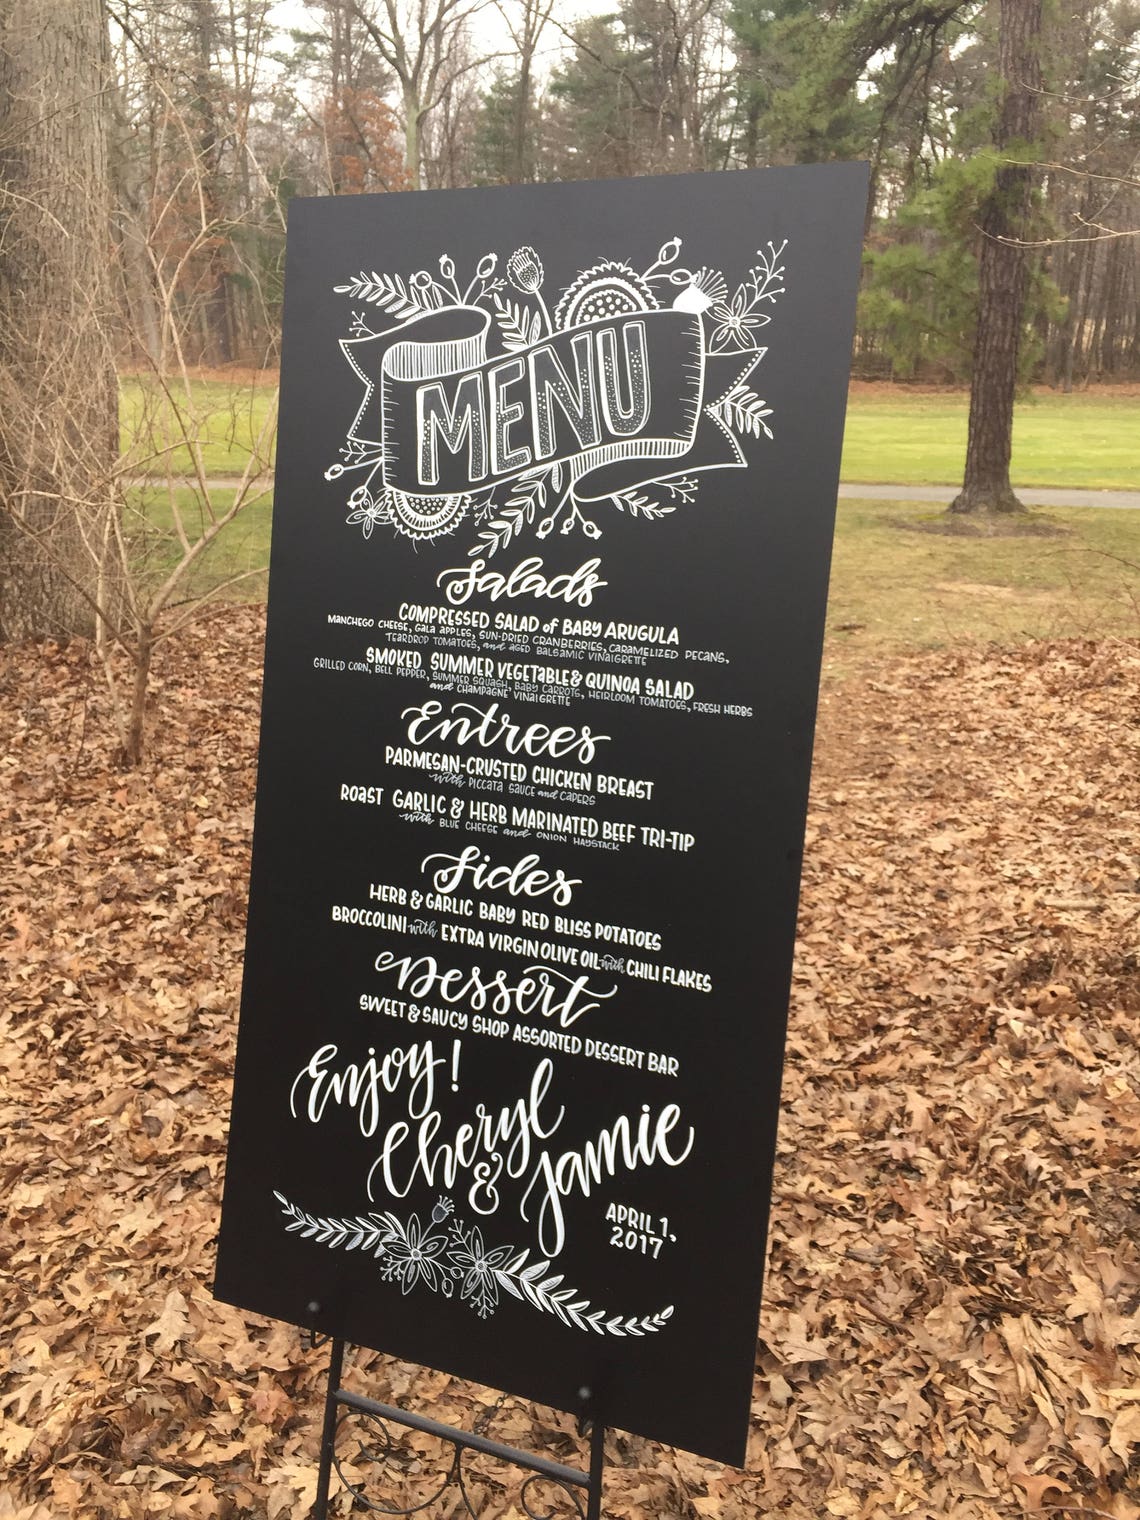 MENU
Salads
COMPRESSED SALAD of BABY ARUGULA
MANCHEGO CHEESE, GALA APPLES, SUN-DRIED CRANBERRIES, CARAMELIZED PECANS,
TEARDROP TOMATOES, and AGED BALSAMIC VINAIGRETTE
SMOKED SUMMER VEGETABLE & QUINOA SALAD
GRILLED CORN, BELL PEPPER, SUMMER SQUASH, BABY CARROTS, HEIRLOOM TOMATOES, FRESH HERBS
and CHAMPAGNE VINAIGRETTE
Entrees
PARMESAN-CRUSTED CHICKEN BREAST
with PICCATA SAUCE and CAPERS
ROAST GARLIC & HERB MARINATED BEEF TRI-TIP
with BLUE CHEESE and ONION HAYSTACK
Sides
HERB & GARLIC BABY RED BLISS POTATOES
BROCCOLINI with EXTRA VIRGIN OLIVE OIL with CHILI FLAKES
Dessert
SWEET & SAUCY SHOP ASSORTED DESSERT BAR
Enjoy!
Cheryl
& Jamie
APRIL 1,
2017